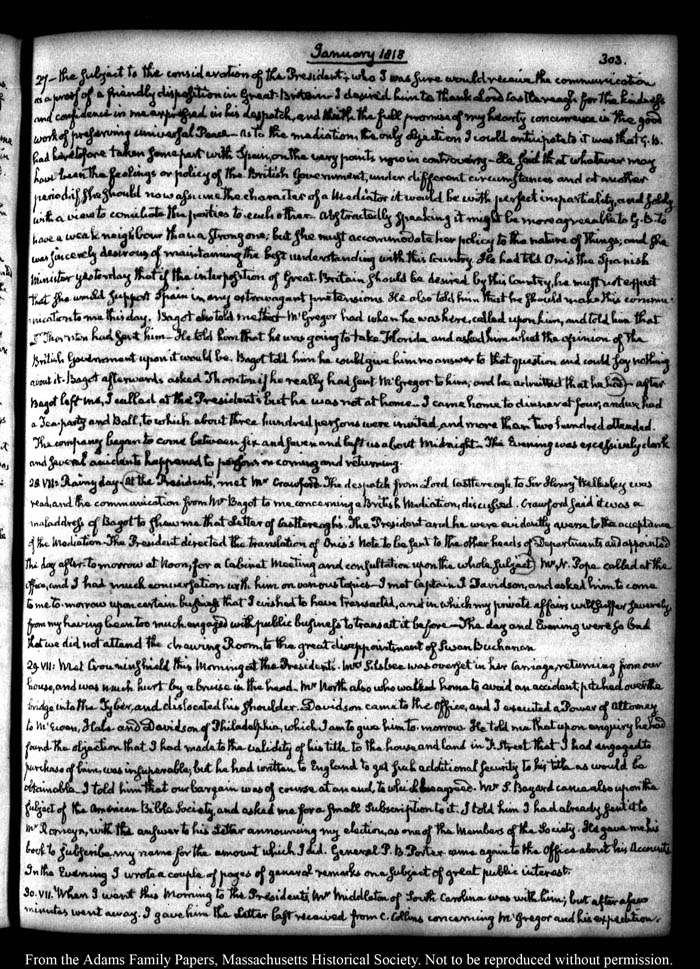 January 1818
303.
27— the subject to the consideration of the President, who I was sure would receive the communication
as a proof of a friendly disposition in Great-Britain— I desired him to thank Lord Castlereagh for the kindness
and confidence in me expressed in his despatch, and with the full promise of my hearty concurrence in the good
work of preserving universal Peace— As to the mediation, the only objection I could anticipate to it was that G. B.
had heretofore taken some part with Spain, on the very points now in controversy— He said that whatever may
have been the feelings or policy of the British Government, under different circumstances and at another
period, if she should now assume the character of a Mediator it would be with perfect impartiality, and solely
with a view to conciliate the parties to each other. Abstractedly speaking it might be more agreeable to G. B. to
have a weak neighbour than a strong one; but she must accommodate her policy to the nature of things; and she
was sincerely desirous of maintaining the best understanding with this Country. He had told Onis the Spanish
Minister yesterday that if the interposition of Great-Britain should be desired by this Country, he must not expect
that she would support Spain in any extravagant pretensions He also told him that he should make this commu-
nication to me this day. Bagot also told me that McGregor had when he was here, called upon him, and told him that
Dr Thornton had sent him— He told him that he was going to take Florida and asked him what the opinion of the
British Government upon it would be. Bagot told him he could give him no answer to that question and could say nothing
about it. Bagot afterwards asked Thornton if he really had sent McGregor to him; and he admitted that he had— after
Bagot left me, I called at the President's but he was not at home— I came home to dinner at four, and we had
a Tea-party and Ball, to which about three hundred persons were invited, and more than two hundred attended.
The company began to come between six and seven and left us about Midnight— The Evening was excessively dark
and several accidents happened to persons in coming and returning.
28. VII: Rainy day— At the Presidents, met Mr Crawford. The despatch from Lord Castlereagh to Sir Henry Wellesley was
read, and the communication from Mr Bagot to me concerning a British Mediation, discussed. Crawford said it was a
maladdress of Bagot to shew me that Letter of Castlereagh's. The President and he were evidently averse to the acceptance
of the Mediation— The President directed the translation of Onis's Note to be sent to the other heads of Departments and appointed
the day after to-morrow at Noon, for a Cabinet Meeting and consultation upon the whole subject— Mr N. Pope called at the
office, and I had much conversation with him on various topics— I met Captain I Davidson, and asked him to come
to me to-morrow upon certain business that I wished to have transacted, and in which my private affairs will suffer severely,
from my having been too much engaged with public business to transact it before— The day and Evening were so bad
that we did not attend the drawing Room, to the great disappointment of Susan Buchanan
29. VII: Met Crowninshield this Morning at the Presidents. Mrs Silsbee was overset in her Carriage, returning from our
house, and was much hurt by a bruise in the head. Mr North also who walked home to avoid an accident, pitched over the
bridge into the Tyber, and dislocated his shoulder. Davidson came to the office, and I executed a Power of Attorney
to McEuen, Hale and Davidson of Philadelphia, which I am to give him to-morrow He told me that upon enquiry he had
found the objection that I had made to the validity of his title to the house and land in F. Street that I had engaged to
purchase of him, was insuperable; but he had written to England to get such additional security to his title as would be
obtainable. I told him that our bargain was of course at an end, to which he agreed. Mr S. Bayard came also upon the
subject of the American Bible Society, and asked me for a small Subscription to it. I told him I had already sent it to
Mr Romeyn, with the answer to his Letter announcing my election, as one of the Members of the Society. He gave me his
book to subscribe my name for the amount which I did. General P. B. Porter came again to the Office about his Accounts
In the Evening I wrote a couple of pages of general remarks on a subject of great public interest.
30. VII. When I went this Morning to the Presidents, Mr Middleton of South Carolina was with him; but after a few
minutes went away. I gave him the Letter last received from C. Collins concerning McGregor and his expedition.
From the Adams Family Papers, Massachusetts Historical Society. Not to be reproduced without permission.